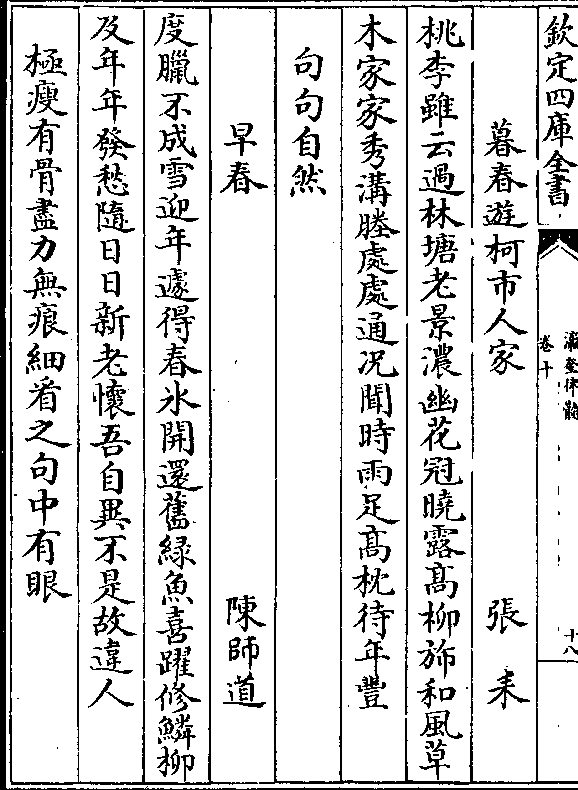 欽定四庫全書
瀛奎律髓
卷十
十八
暮春遊柯市人家 張耒
桃李雖云過林塘老景濃幽花冠曉露髙柳斾和風草
木家家秀溝塍處處通况聞時雨足髙枕待年豐
句句自然
早春 陳師道
度臘不成雪迎年遽得春氷開還舊緑魚喜躍修鱗柳
及年年發愁隨日日新老懷吾自異不是故違人
極瘦有骨盡力無痕細㸔之句中有眼